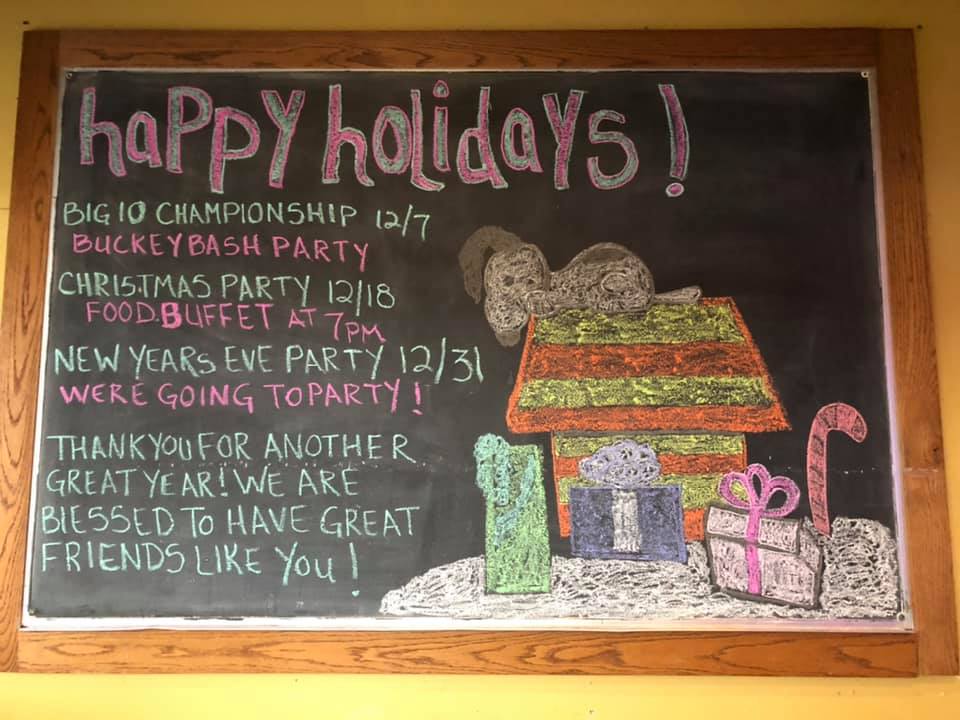 happy holidays!
BIG 10 CHAMPIONSHIP 12/7
BUCKEYBASH PARTY
CHRISTMAS PARTY 12/18
FOOD BUFFET AT 7PM
NEW YEARS EVE PARTY 12/31
WERE GOING TO PARTY!
THANK YOU FOR ANOTHER
GREAT YEAR! WE ARE
BLESSED TO HAVE GREAT
FRIENDS LIKE YOU!